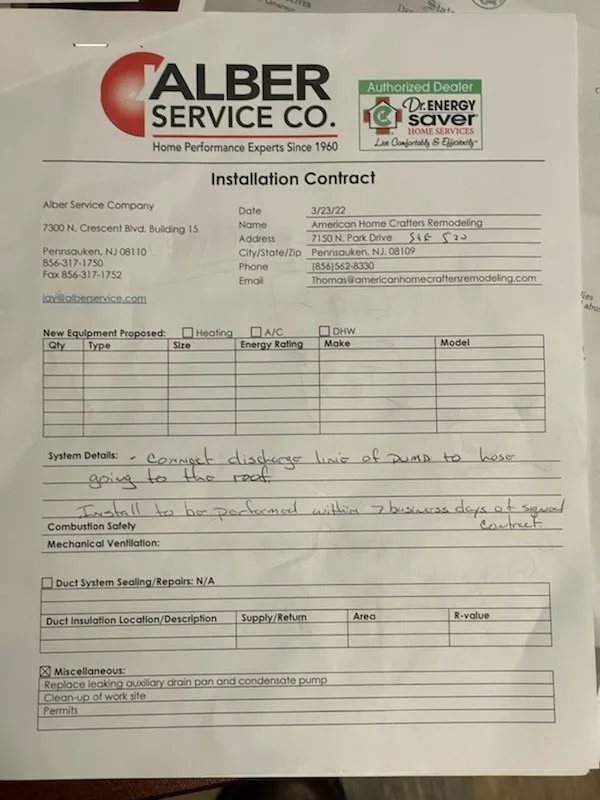 ALBER
SERVICE CO.
Home Performance Experts Since 1960
Authorized Dealer
Dr. ENERGY
saver
HOME SERVICES
Live Comfortably & Efficiently
Installation Contract
Alber Service Company
7300 N. Crescent Blvd. Building 15
Pennsauken, NJ 08110
856-317-1750
Fax 856-317-1752
jay@alberservice.com
Date 3/23/22
Name American Home Crafters Remodeling
Address 7150 N. Park Drive STE 520
City/State/Zip Pennsauken, NJ. 08109
Phone (856)562-8330
Email Thomas@americanhomecraftersremodeling.com
New Equipment Proposed: Heating A/C DHW
Qty Type Size Energy Rating Make Model
System Details: - Connect discharge line of pump to hose
going to the roof
Install to be performed within 7 business days of signed
contract
Combustion Safety
Mechanical Ventilation:
Duct System Sealing/Repairs: N/A
Duct Insulation Location/Description Supply/Return Area R-value
Miscellaneous:
Replace leaking auxiliary drain pan and condensate pump
Clean-up of work site
Permits